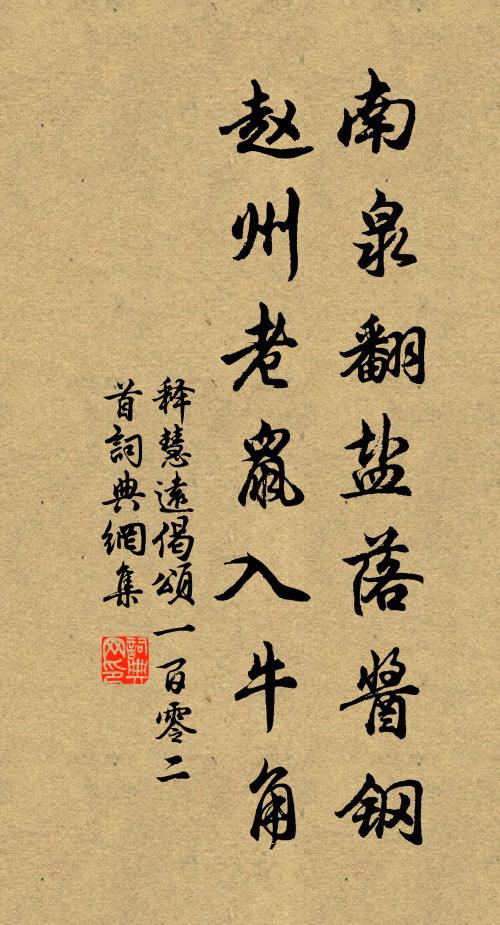 南泉翻盐落醬钢
赵州老鼠入牛角
释慧遠偈頌一百零二
首詞典網集
詞典网印